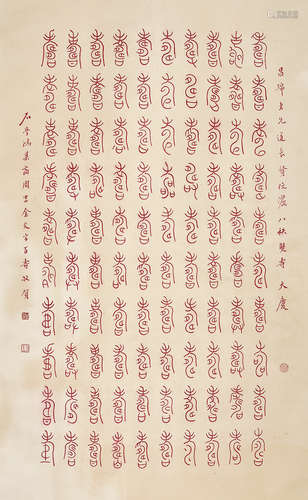 道長賢伉儷八秩雙壽 大慶
壽壽壽壽壽壽壽壽壽壽
壽壽壽壽壽壽壽壽壽壽
壽壽壽壽壽壽壽壽壽壽
壽壽壽壽壽壽壽壽壽壽
壽壽壽壽壽壽壽壽壽壽
壽壽壽壽壽壽壽壽壽壽
壽壽壽壽壽壽壽壽壽壽
壽壽壽壽壽壽壽壽壽壽
壽壽壽壽壽壽壽壽壽壽
壽壽壽壽壽壽壽壽壽壽
集商周吉金文字百壽敬賀